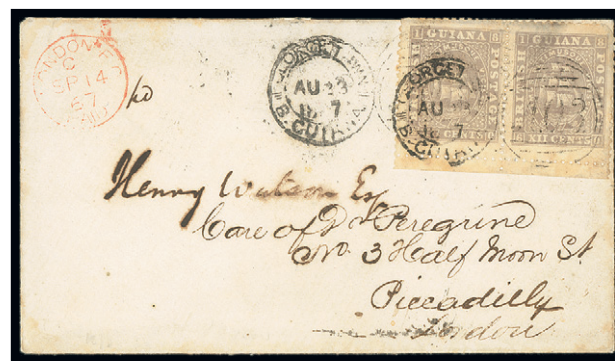 LONDON E.C
C
SP 14
67
PAID
GEORGETOWN
AU 23
18 7
B. GUIANA
GEORGET
AU
18 7
B. GUIA
1 GUIANA 8
BRITISH
POSTAGE
6 CENTS 0
1 GUIANA 8
BRITISH
POSTAGE
6 XII CENTS 0
Henry Watson Esq
Care of Dr Peregrine
No. 3 Half Moon St
Piccadilly
London